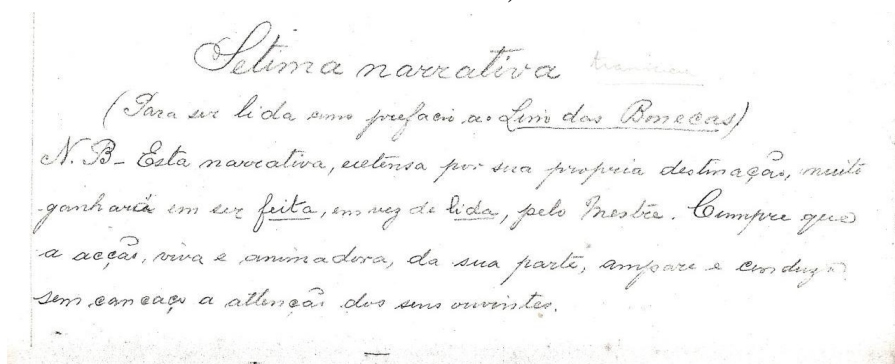 Setima narrativa
(Para ser lida como prefacio ao Livro das Bonecas)
N. B – Esta narrativa, extensa por sua propria destinação, muito
ganhará em ser feita, em vez de lida, pelo Mestre. Cumpre que
a acção, viva e animadora, da sua parte, ampare e conduza
sem cançaço a attenção dos seus ouvintes.